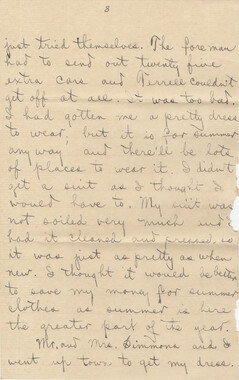 3
just tried themselves. The foreman
had to send out twenty five
extra cars and Terrell couldn't
get off at all. It was too bad.
I had gotten me a pretty dress
to wear, but it is for summer
any way and there'll be lots
of places to wear it. I didn't
get a suit as I thought I
would have to. My suit was
not soiled very much and I
had it cleaned and pressed so
it was just as pretty as when
new. I thought it would be better
to save my money for summer
clothes as summer is here
the greater part of the year.
Mr. and Mrs. Simmons and I
went up town to get my dress.